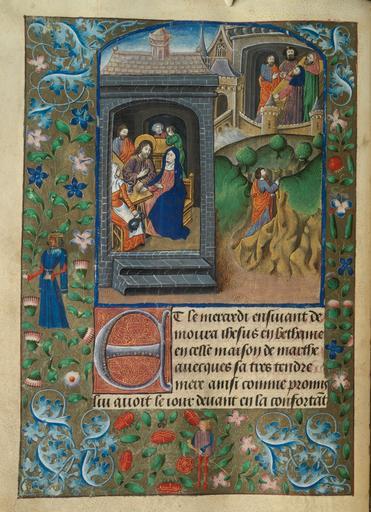 Et le merardt ensuiant de
moura ihesus en bethanie
en celle maison de marthe
auecques sa tres tendre
mere ainsi comme promis
lui auoit le iour deuant en la confortãt